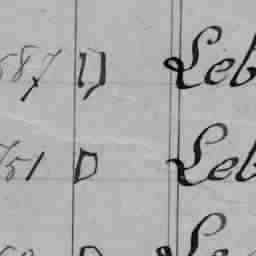 587 D Leb
751 D Leb
Le